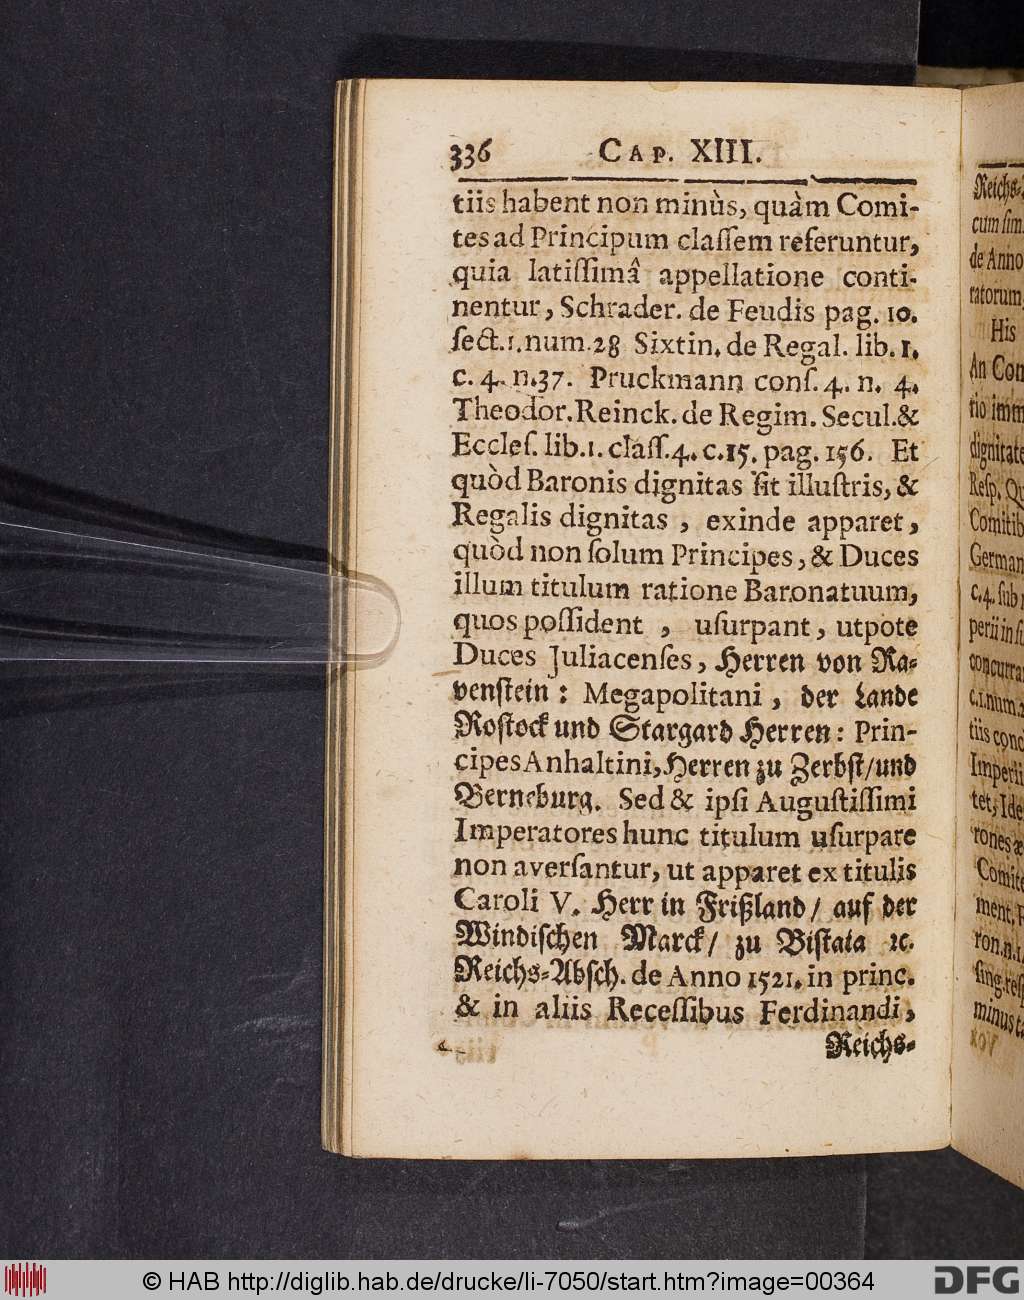 336 CAP. XIII.
tiis habent non minùs, quàm Comi-
tes ad Principum claſſem referuntur,
quia latiſſimâ appellatione conti-
nentur, Schrader. de Feudis pag. 10.
ſect. 1. num. 28 Sixtin. de Regal. lib. 1.
c. 4. n. 37. Pruckmann conſ. 4. n. 4.
Theodor. Reinck. de Regim. Secul. &
Eccleſ. lib. 1. claſſ. 4. c. 15. pag. 156. Et
quòd Baronis dignitas ſit illuſtris, &
Regalis dignitas, exinde apparet,
quòd non ſolum Principes, & Duces
illum titulum ratione Baronatuum,
quos poſſident, uſurpant, utpote
Duces Juliacenſes, Herren von Ra-
venſtein: Megapolitani, der Lande
Roſtock und Stargard Herren: Prin-
cipes Anhaltini, Herren zu Zerbſt/und
Berneburg. Sed & ipſi Auguſtiſſimi
Imperatores hunc titulum uſurpare
non averſantur, ut apparet ex titulis
Caroli V. Herr in Frißland/ auf der
Windiſchen Marck/ zu Biſtaia ꝛc.
Reichs-Abſch. de Anno 1521. in princ.
& in aliis Receſſibus Ferdinandi,
Reichs-
Reichs-
cum ſim
de Anno
ratorum
His
An Con
tio imm
dignitate
Reſp. Qu
Comitib
German
c. 4. ſub
perii in ſi
concurra
c. 1. num. 2
tiis conc
Imperii
tet, Ide
rones æ
Comite
ment.
ron. n. 1
ſing. reſ
minus t
© HAB http://diglib.hab.de/drucke/li-7050/start.htm?image=00364
DFG